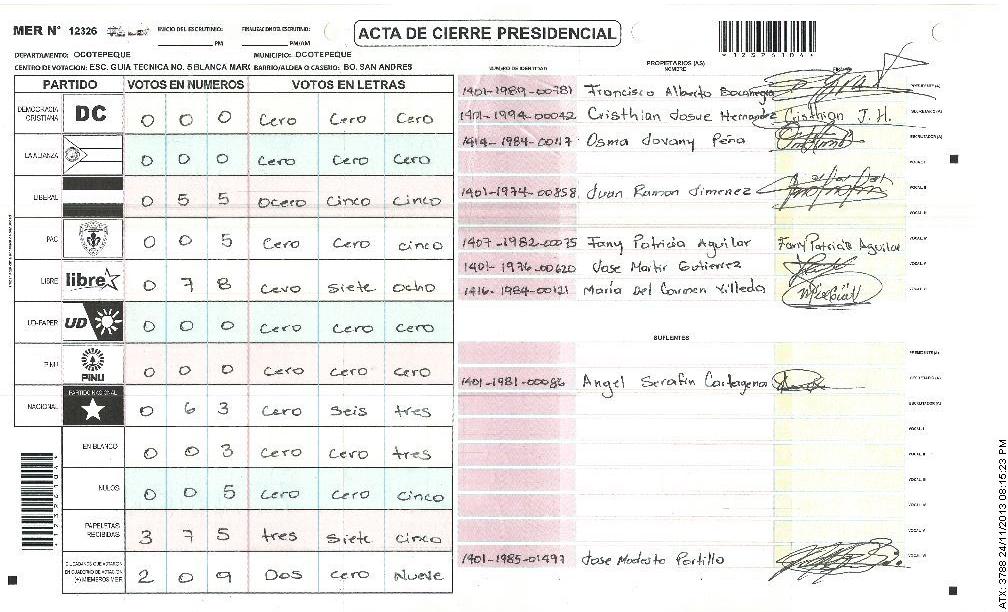 MER N° 12326 INICIO DEL ESCRUTINIO: PM FINALIZACION DEL ESCRUTINIO: PM/AM
ACTA DE CIERRE PRESIDENCIAL
*12326104*
DEPARTAMENTO: OCOTEPEQUE MUNICIPIO: OCOTEPEQUE
CENTRO DE VOTACION: ESC. GUIA TECNICA NO. 5 BLANCA MARG BARRIO/ALDEA O CASERIO: BO. SAN ANDRES
PARTIDO VOTOS EN NUMEROS VOTOS EN LETRAS
DEMOCRACIA CRISTIANA DC 0 0 0 Cero Cero Cero
LA ALIANZA 0 0 0 Cero Cero Cero
LIBERAL 0 5 5 Ocero Cinco Cinco
PAC 0 0 5 Cero Cero Cinco
LIBRE libre 0 7 8 Cero Siete Ocho
UD-FAPER UD 0 0 0 Cero Cero Cero
PINU PINU 0 0 0 Cero Cero Cero
NACIONAL PARTIDO NACIONAL 0 6 3 Cero Seis tres
EN BLANCO 0 0 3 Cero Cero tres
NULOS 0 0 5 Cero Cero Cinco
PAPELETAS RECIBIDAS 3 7 5 tres Siete Cinco
CIUDADANOS QUE VOTARON EN CUADERNO DE VOTACION (+) MIEMBROS MER 2 0 9 Dos Cero Nueve
PROPIETARIOS (AS)
NUMERO DE IDENTIDAD NOMBRE FIRMA
1401-1989-00781 Francisco Alberto Bocanegra PRESIDENTE (A)
1401-1994-00042 Cristhian Josue Hernandez Cristhian J. H. SECRETARIO (A)
1414-1984-00117 Osma Jovany Peña ESCRUTADOR (A)
VOCAL I
1401-1974-00858 Juan Ramon Jimenez VOCAL II
VOCAL III
1407-1982-00075 Fany Patricia Aguilar Fany Patricia Aguilar VOCAL IV
1401-1976-00620 Jose Martir Gutierrez VOCAL V
1416-1984-00121 Maria Del Carmen Villeda
SUPLENTES
PRESIDENTE (A)
1401-1981-00086 Angel Serafin Cartagena SECRETARIO (A)
ESCRUTADOR (A)
VOCAL I
VOCAL II
VOCAL III
VOCAL IV
VOCAL V
1401-1985-01497 Jose Modesto Portillo
ATX: 3788 24/11/2013 08:15:23 PM